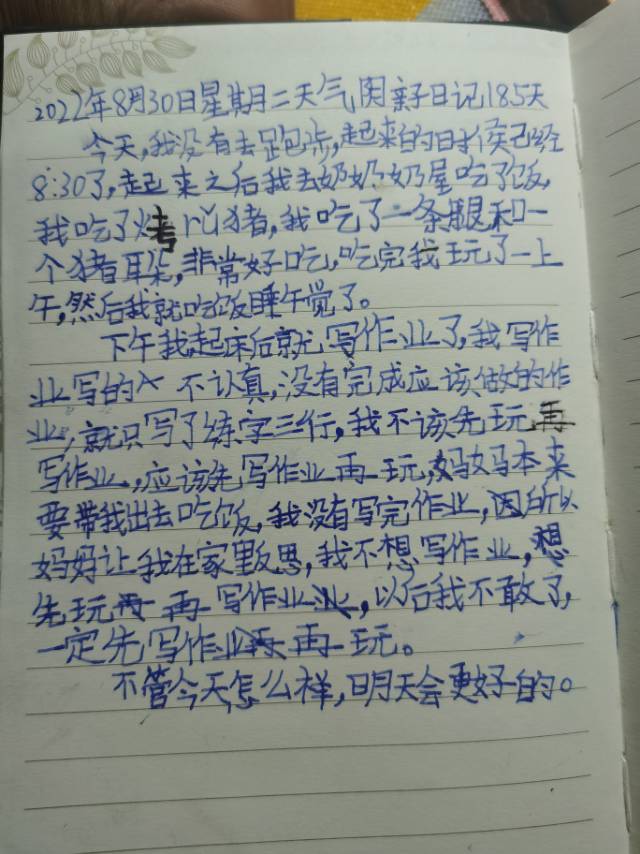 2022年8月30日星期二天气阴亲子日记185天
今天,我没有去跑步,起来的时候已经
8:30了,起来之后我去奶奶奶屋吃了饭,
我吃了烤 猪,我吃了一条腿和一
个猪耳朵,非常好吃,吃完我玩了一上
午,然后我就吃饭睡午觉了。
下午我起床后就写作业了,我写作
业写的 不认真,没有完成应该做的作
业,就只写了练字三行,我不该先玩再
写作业,应该先写作业再玩,妈妈本来
要带我出去吃饭,我没有写完作业,因所以
妈妈让我在家里反思,我不想写作业,想
先玩再 再写作业业,以后我不敢了,
一定先写作业再 再玩。
不管今天怎么样,明天会更好的。